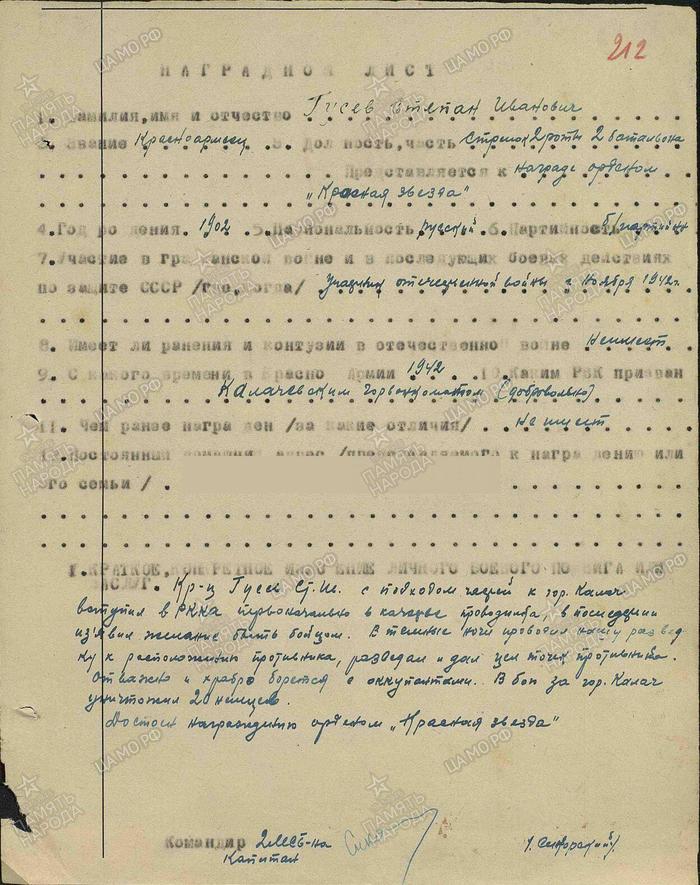 212
НАГРАДНОЙ ЛИСТ
1. Фамилия, имя и отчество Гусев Степан Иванович
2. Звание Красноармеец 3. Должность, часть Стрелок 2 роты 2 батальона
Представляется к награде орденом
„Красная звезда"
4. Год рождения 1902 5. Национальность русский 6. Партийность б/партийн
7. Участие в гражданской войне и в последующих боевых действиях
по защите СССР /где, когда/ Участник отечественной войны с Ноября 1942г.
8. Имеет ли ранения и контузии в отечественной войне Не имеет
9. С какого времени в Красной Армии 1942 10. Каким РВК призван
Калачевским горвоенкоматом (добровольно)
11. Чем ранее награжден /за какие отличия/ Не имеет
12. Постоянный домашний адрес /представляемого к награждению или
его семьи/
1. КРАТКОЕ, КОНКРЕТНОЕ ИЗЛОЖЕНИЕ ЛИЧНОГО БОЕВОГО ПОДВИГА ИЛИ
ЗАСЛУГ. Кр-ц Гусев Ст. Ив. с подходом частей к гор. Калач
вступил в РККА первоначально в качестве проводника, в последствии
из'явил желание быть бойцом. В темные ночи проводил нашу развед
ку к расположению противника, разведал и дал цел точек противника.
Отважно и храбро борется с оккупантами. В бою за гор. Калач
уничтожил 20 немцев.
Достоин награждению орденом „Красная звезда"
Командир 2МСБ-на
Капитан
/Сикорский/
ПАМЯТЬ НАРОДА
ЦАМО РФ